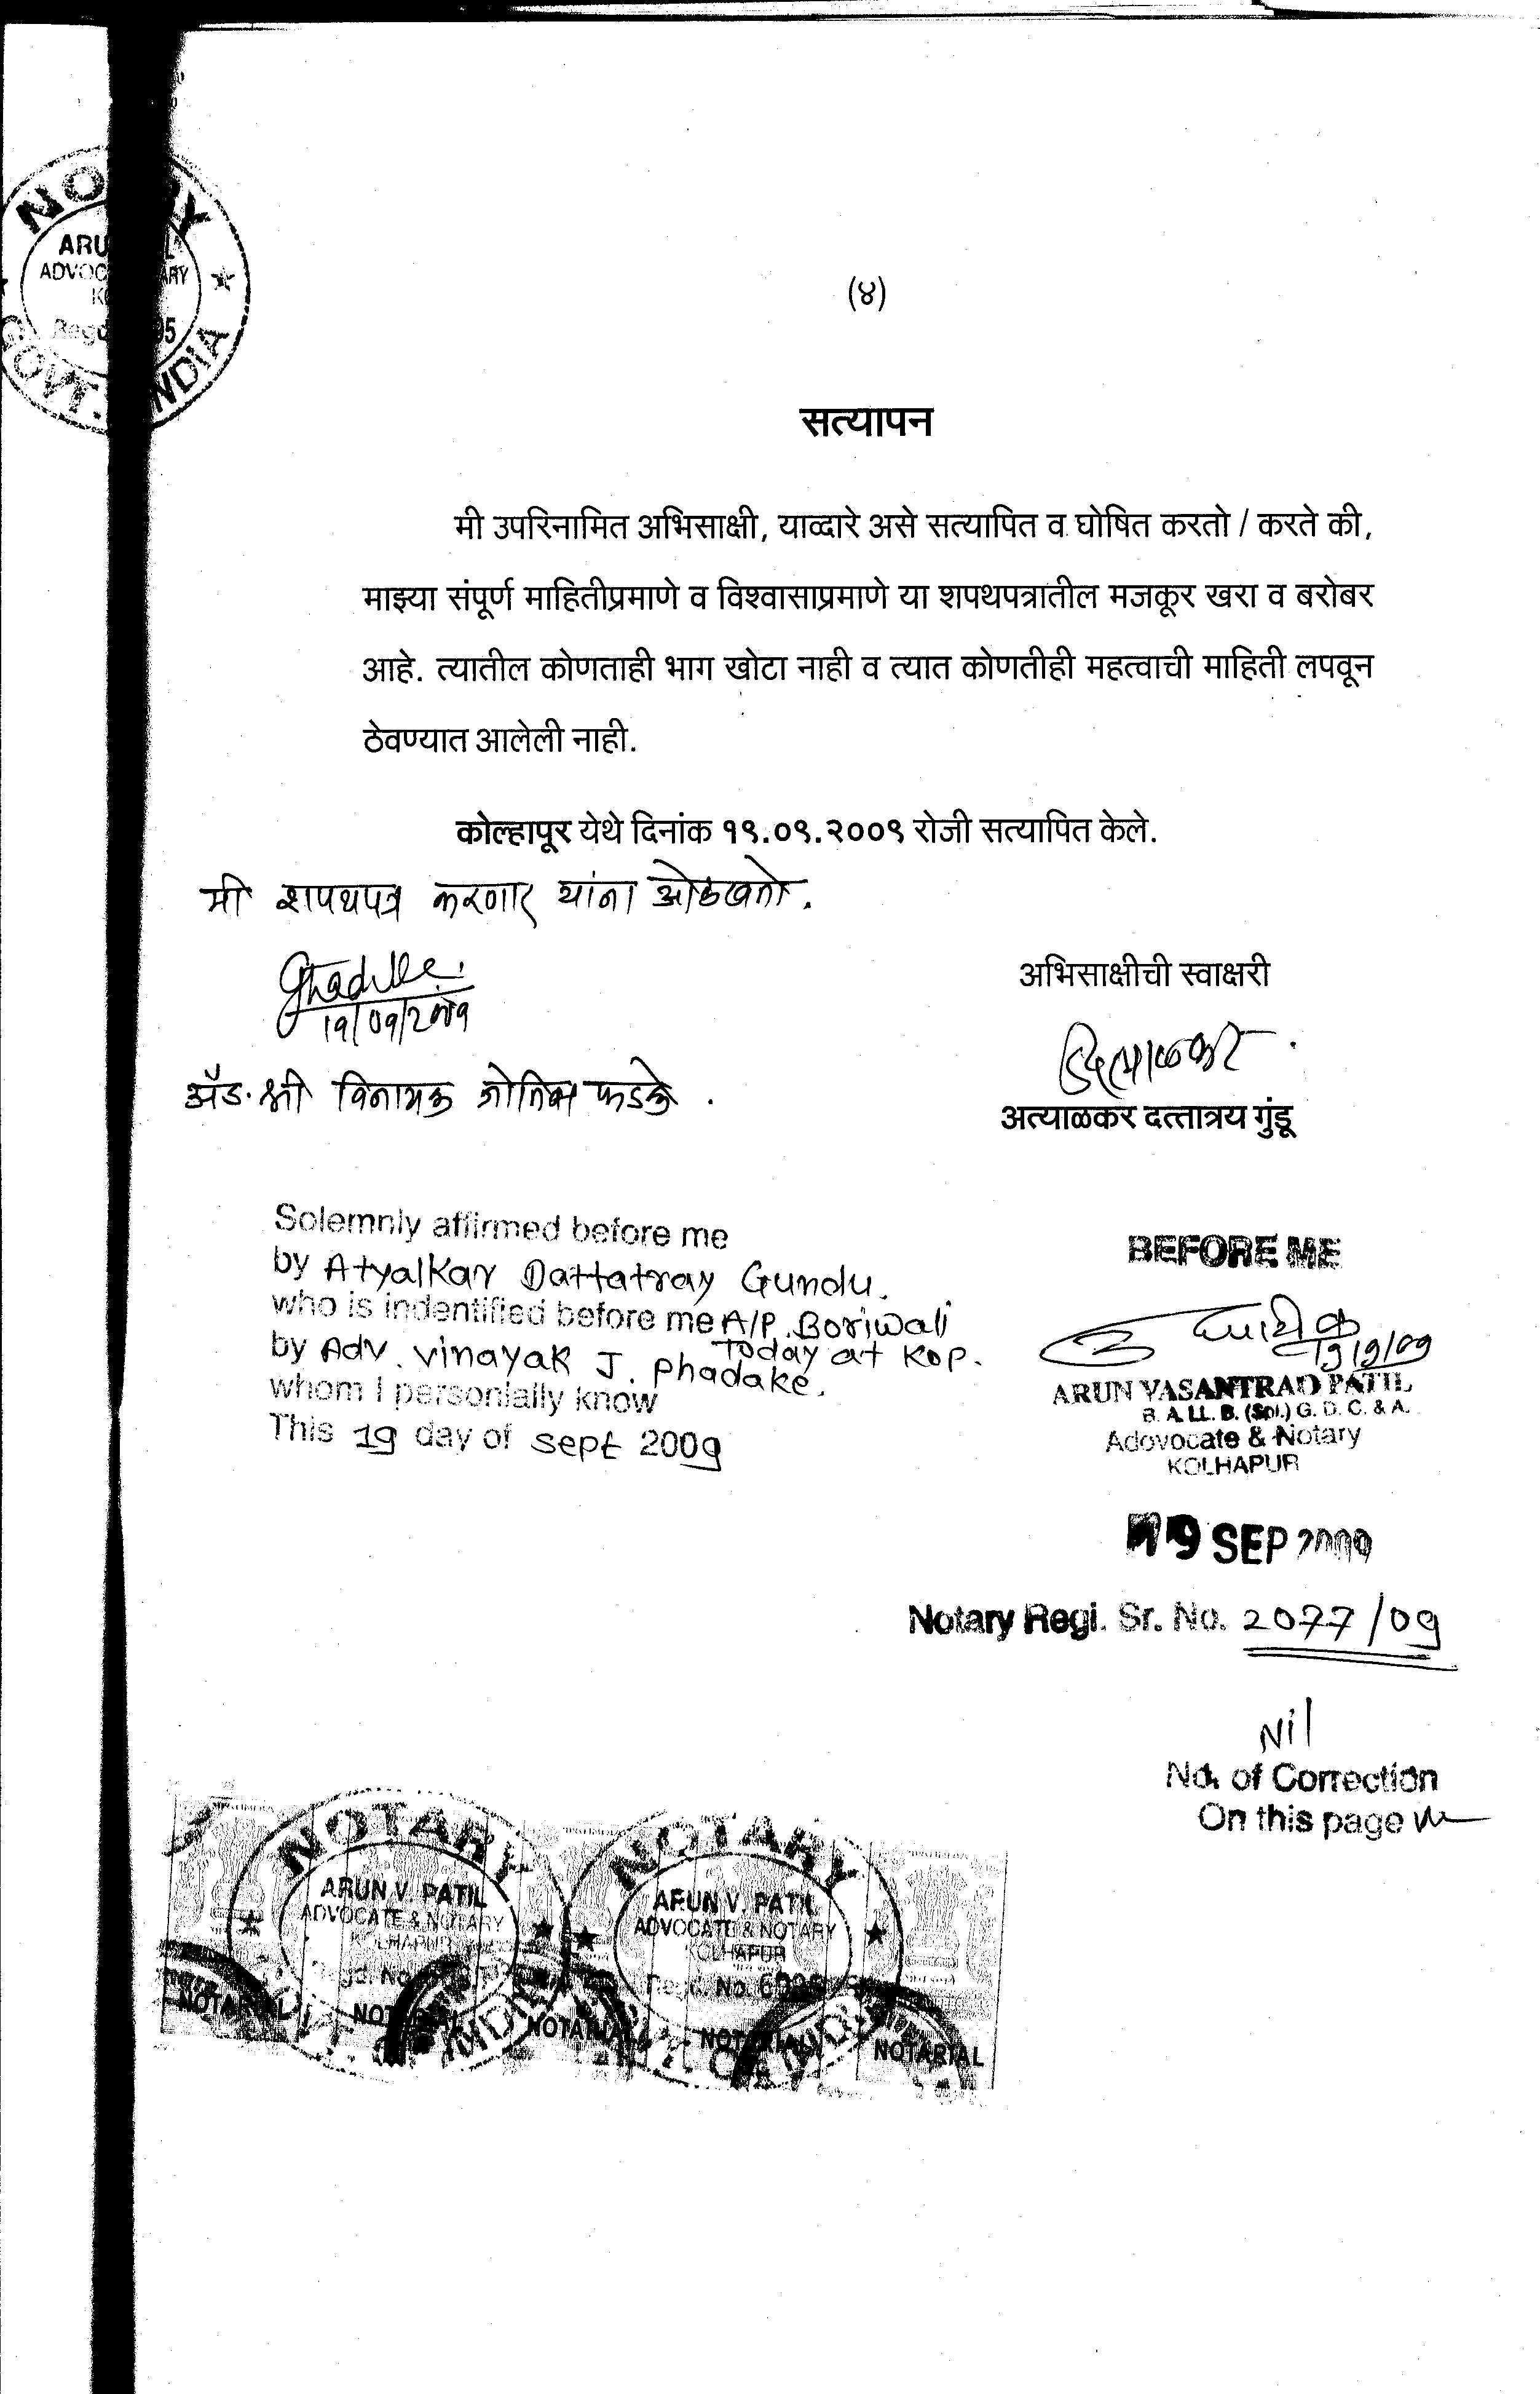 NOTARY
ARUN V. PATIL
ADVOCATE & NOTARY
GOVT. INDIA
(४)
सत्यापन
मी उपरिनामित अभिसाक्षी, याव्दारे असे सत्यापित व घोषित करतो / करते की,
माझ्या संपूर्ण माहितीप्रमाणे व विश्वासाप्रमाणे या शपथपत्रातील मजकूर खरा व बरोबर
आहे. त्यातील कोणताही भाग खोटा नाही व त्यात कोणतीही महत्वाची माहिती लपवून
ठेवण्यात आलेली नाही.
कोल्हापूर येथे दिनांक १९.०९.२००९ रोजी सत्यापित केले.
मी शपथपत्र करणार यांना ओळखतो.
19/09/2009
अभिसाक्षीची स्वाक्षरी
अॅड. श्री विनायक जोतिबा फडके.
अत्याळकर दत्तात्रय गुंडू
Solemnly affirmed before me
by Atyalkar Dattatray Gundu.
who is indentified before me A/P. Boriwali
Today at Kop.
by Adv. Vinayak J. Phadake.
whom I personlally know
This 19 day of sept 2009
BEFORE ME
19/9/09
ARUN VASANTRAO PATIL
B. A. LL. B. (Spl.) G. D. C. & A.
Adovocate & Notary
KOLHAPUR
19 SEP 2009
Notary Regi. Sr. No. 2077/09
Nil
No. of Correction
On this page
NOTARY NOTARY
ARUN V. PATIL ARUN V. PATIL
ADVOCATE & NOTARY ADVOCATE & NOTARY
KOLHAPUR KOLHAPUR
NOTARIAL NOTARIAL NOTARIAL NOTARIAL NOTARIAL